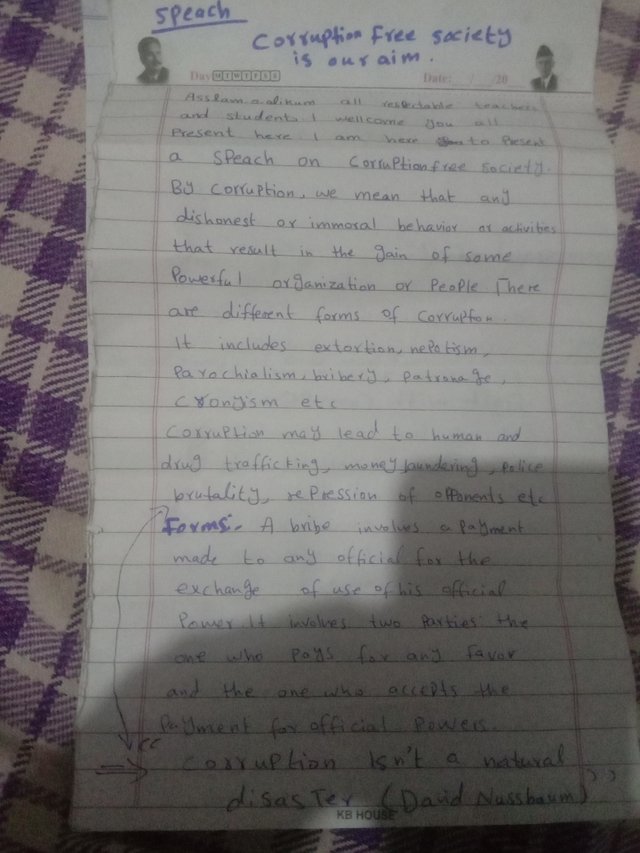 Speach
Corruption free society
is our aim.
Day M T W T F S S Date: / / 20
Asslam.o.alikum all respectable teachers
and students I wellcome you all
Present here. I am here to Present
a Speach on Corruption free Society.
By Corruption, we mean that any
dishonest or immoral behavior or activities
that result in the gain of some
Powerful organization or People There
are different forms of Corruption.
It includes extortion, nepotism,
Parochialism, bribery, Patronage,
Cronyism etc
Corruption may lead to human and
drug trafficking, money laundering, Police
brutality, rePression of oPPonents etc
Forms:- A bribe involves a Payment
made to any official for the
exchange of use of his official
Power. It involves two Parties the
one who Pays for any favor
and the one who accepts the
Payment for official Powers.
“ Corruption Isn't a natural
disaster (David Nussbaum) ”
KB HOUSE